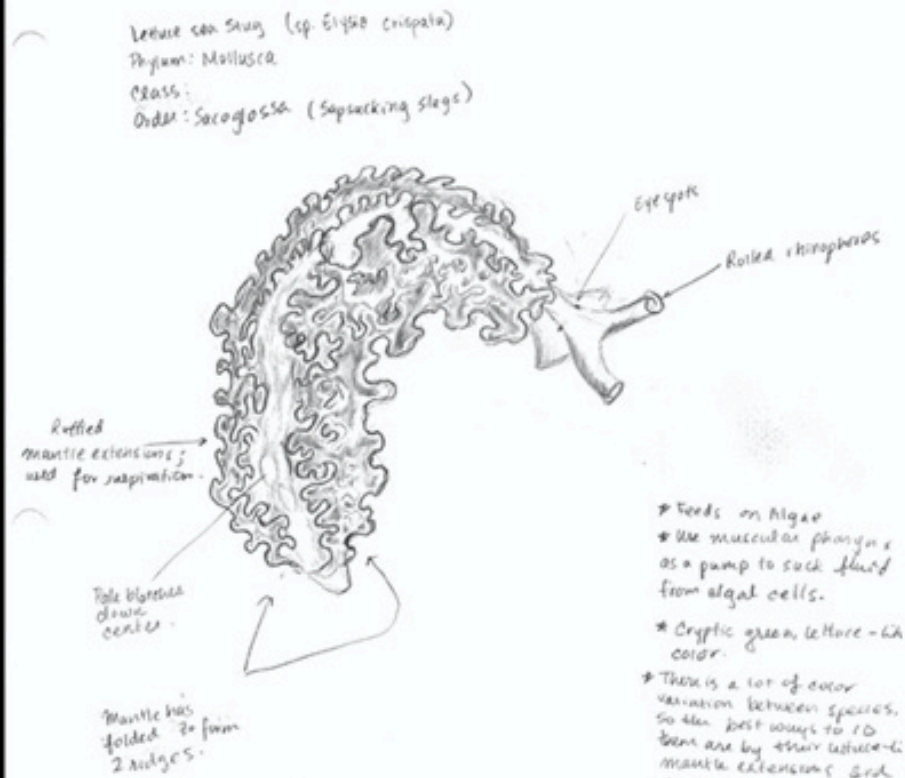 Lettuce sea Slug (sp. Elysia crispata)
Phylum: Mollusca
Class:
Order: Sacoglossa (Sapsucking slugs)
Eye spots
Rolled rhinophores
Ruffled
mantle extensions;
used for respiration.
Pale blotches
down
center.
Mantle has
folded to form
2 ridges.
* Feeds on Algae
* Use muscular pharynx
as a pump to suck fluid
from algal cells.
* Cryptic green, lettuce-lik
color.
* There is a lot of color
variation between species,
so the best ways to ID
them are by their lettuce-li
mantle extensions and